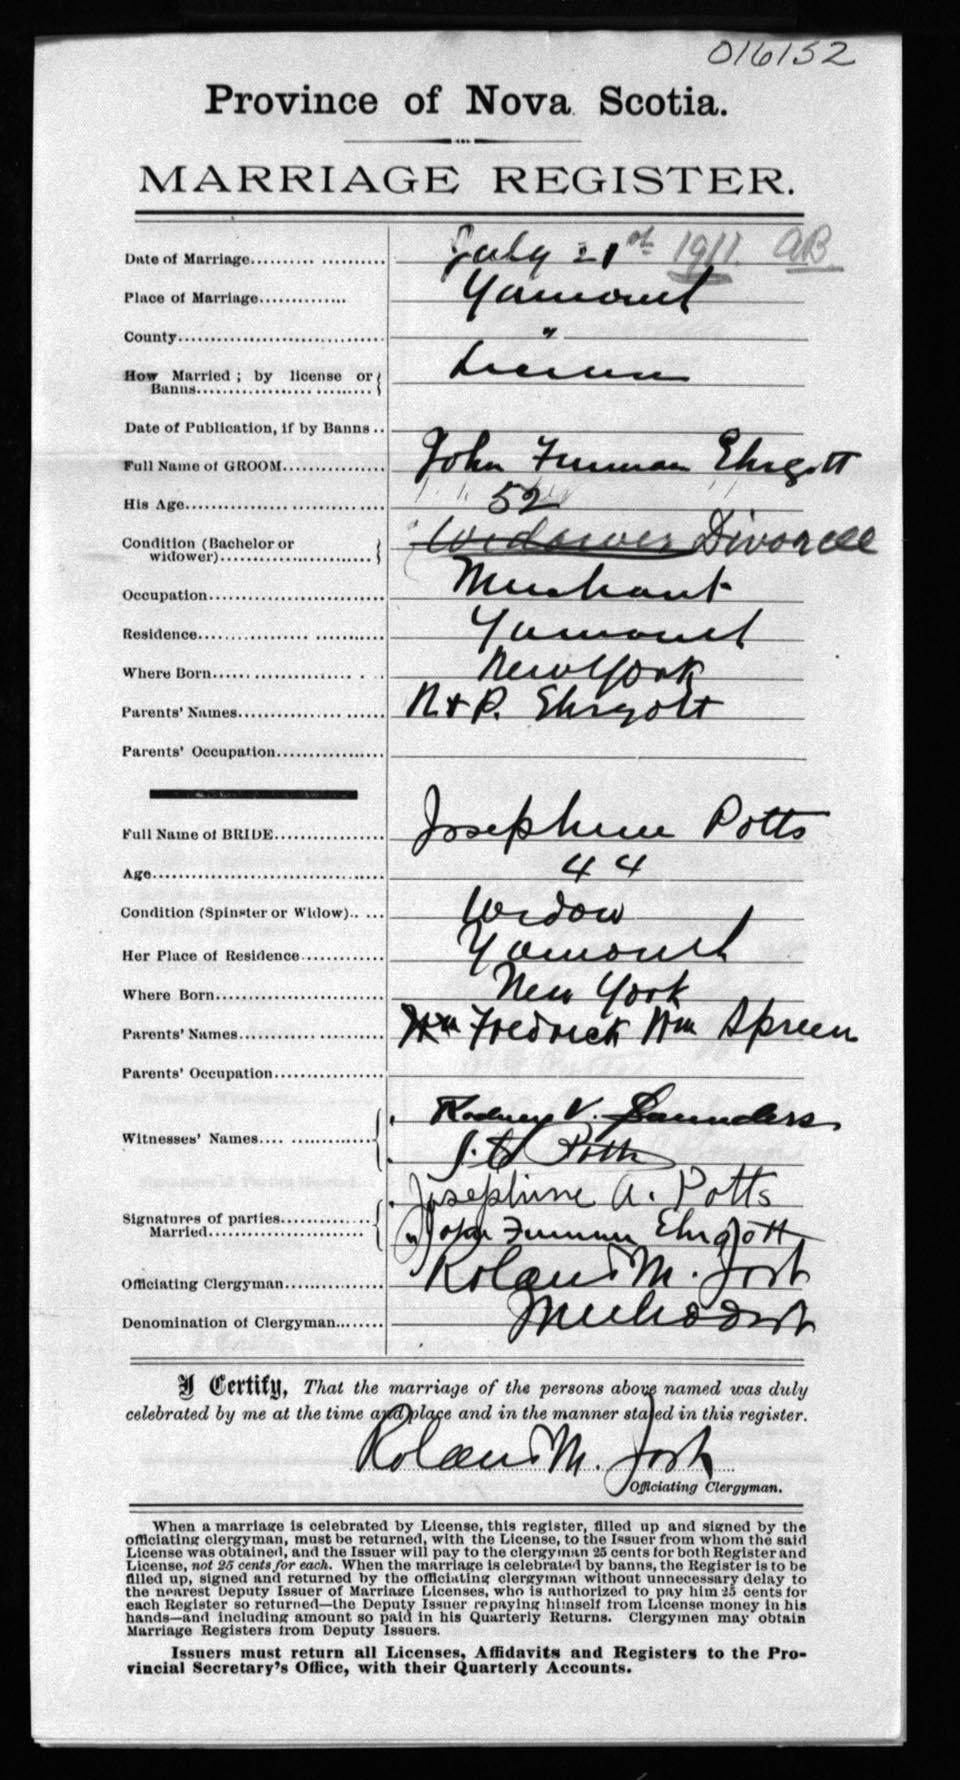 016152
Province of Nova Scotia.
MARRIAGE REGISTER.
Date of Marriage.................. July 21st 1911. AB
Place of Marriage.............. Yarmouth
County................................ "
How Married ; by license or License
Banns..............................
Date of Publication, if by Banns ..
Full Name of GROOM............... John Furman Ehrgott
His Age................................ 52
Condition (Bachelor or Widower Divorcee
widower)..........................
Occupation............................ Merchant
Residence............................. Yarmouth
Where Born........................... New York
Parents' Names....................... N & P. Ehrgott
Parents' Occupation.................
Full Name of BRIDE................ Josephine Potts
Age..................................... 44
Condition (Spinster or Widow)...... Widow
Her Place of Residence............. Yarmouth
Where Born........................... New York
Parents' Names....................... Wm Fredrick Wm Spreen
Parents' Occupation.................
Witnesses' Names.................... Rodney V. Saunders
Potts
Josephine A. Potts
Signatures of parties...............
Married.......................... John Furman Ehrgott
Officiating Clergyman............... Roland M. Jost
Denomination of Clergyman........ Methodist
I Certify, That the marriage of the persons above named was duly
celebrated by me at the time and place and in the manner stated in this register.
Roland M. Jost
Officiating Clergyman.
When a marriage is celebrated by License, this register, filled up and signed by the
officiating clergyman, must be returned, with the License, to the Issuer from whom the said
License was obtained, and the Issuer will pay to the clergyman 25 cents for both Register and
License, not 25 cents for each. When the marriage is celebrated by banns, the Register is to be
filled up, signed and returned by the officiating clergyman without unnecessary delay to
the nearest Deputy Issuer of Marriage Licenses, who is authorized to pay him 25 cents for
each Register so returned—the Deputy Issuer repaying himself from License money in his
hands—and including amount so paid in his Quarterly Returns. Clergymen may obtain
Marriage Registers from Deputy Issuers.
Issuers must return all Licenses, Affidavits and Registers to the Pro-
vincial Secretary's Office, with their Quarterly Accounts.